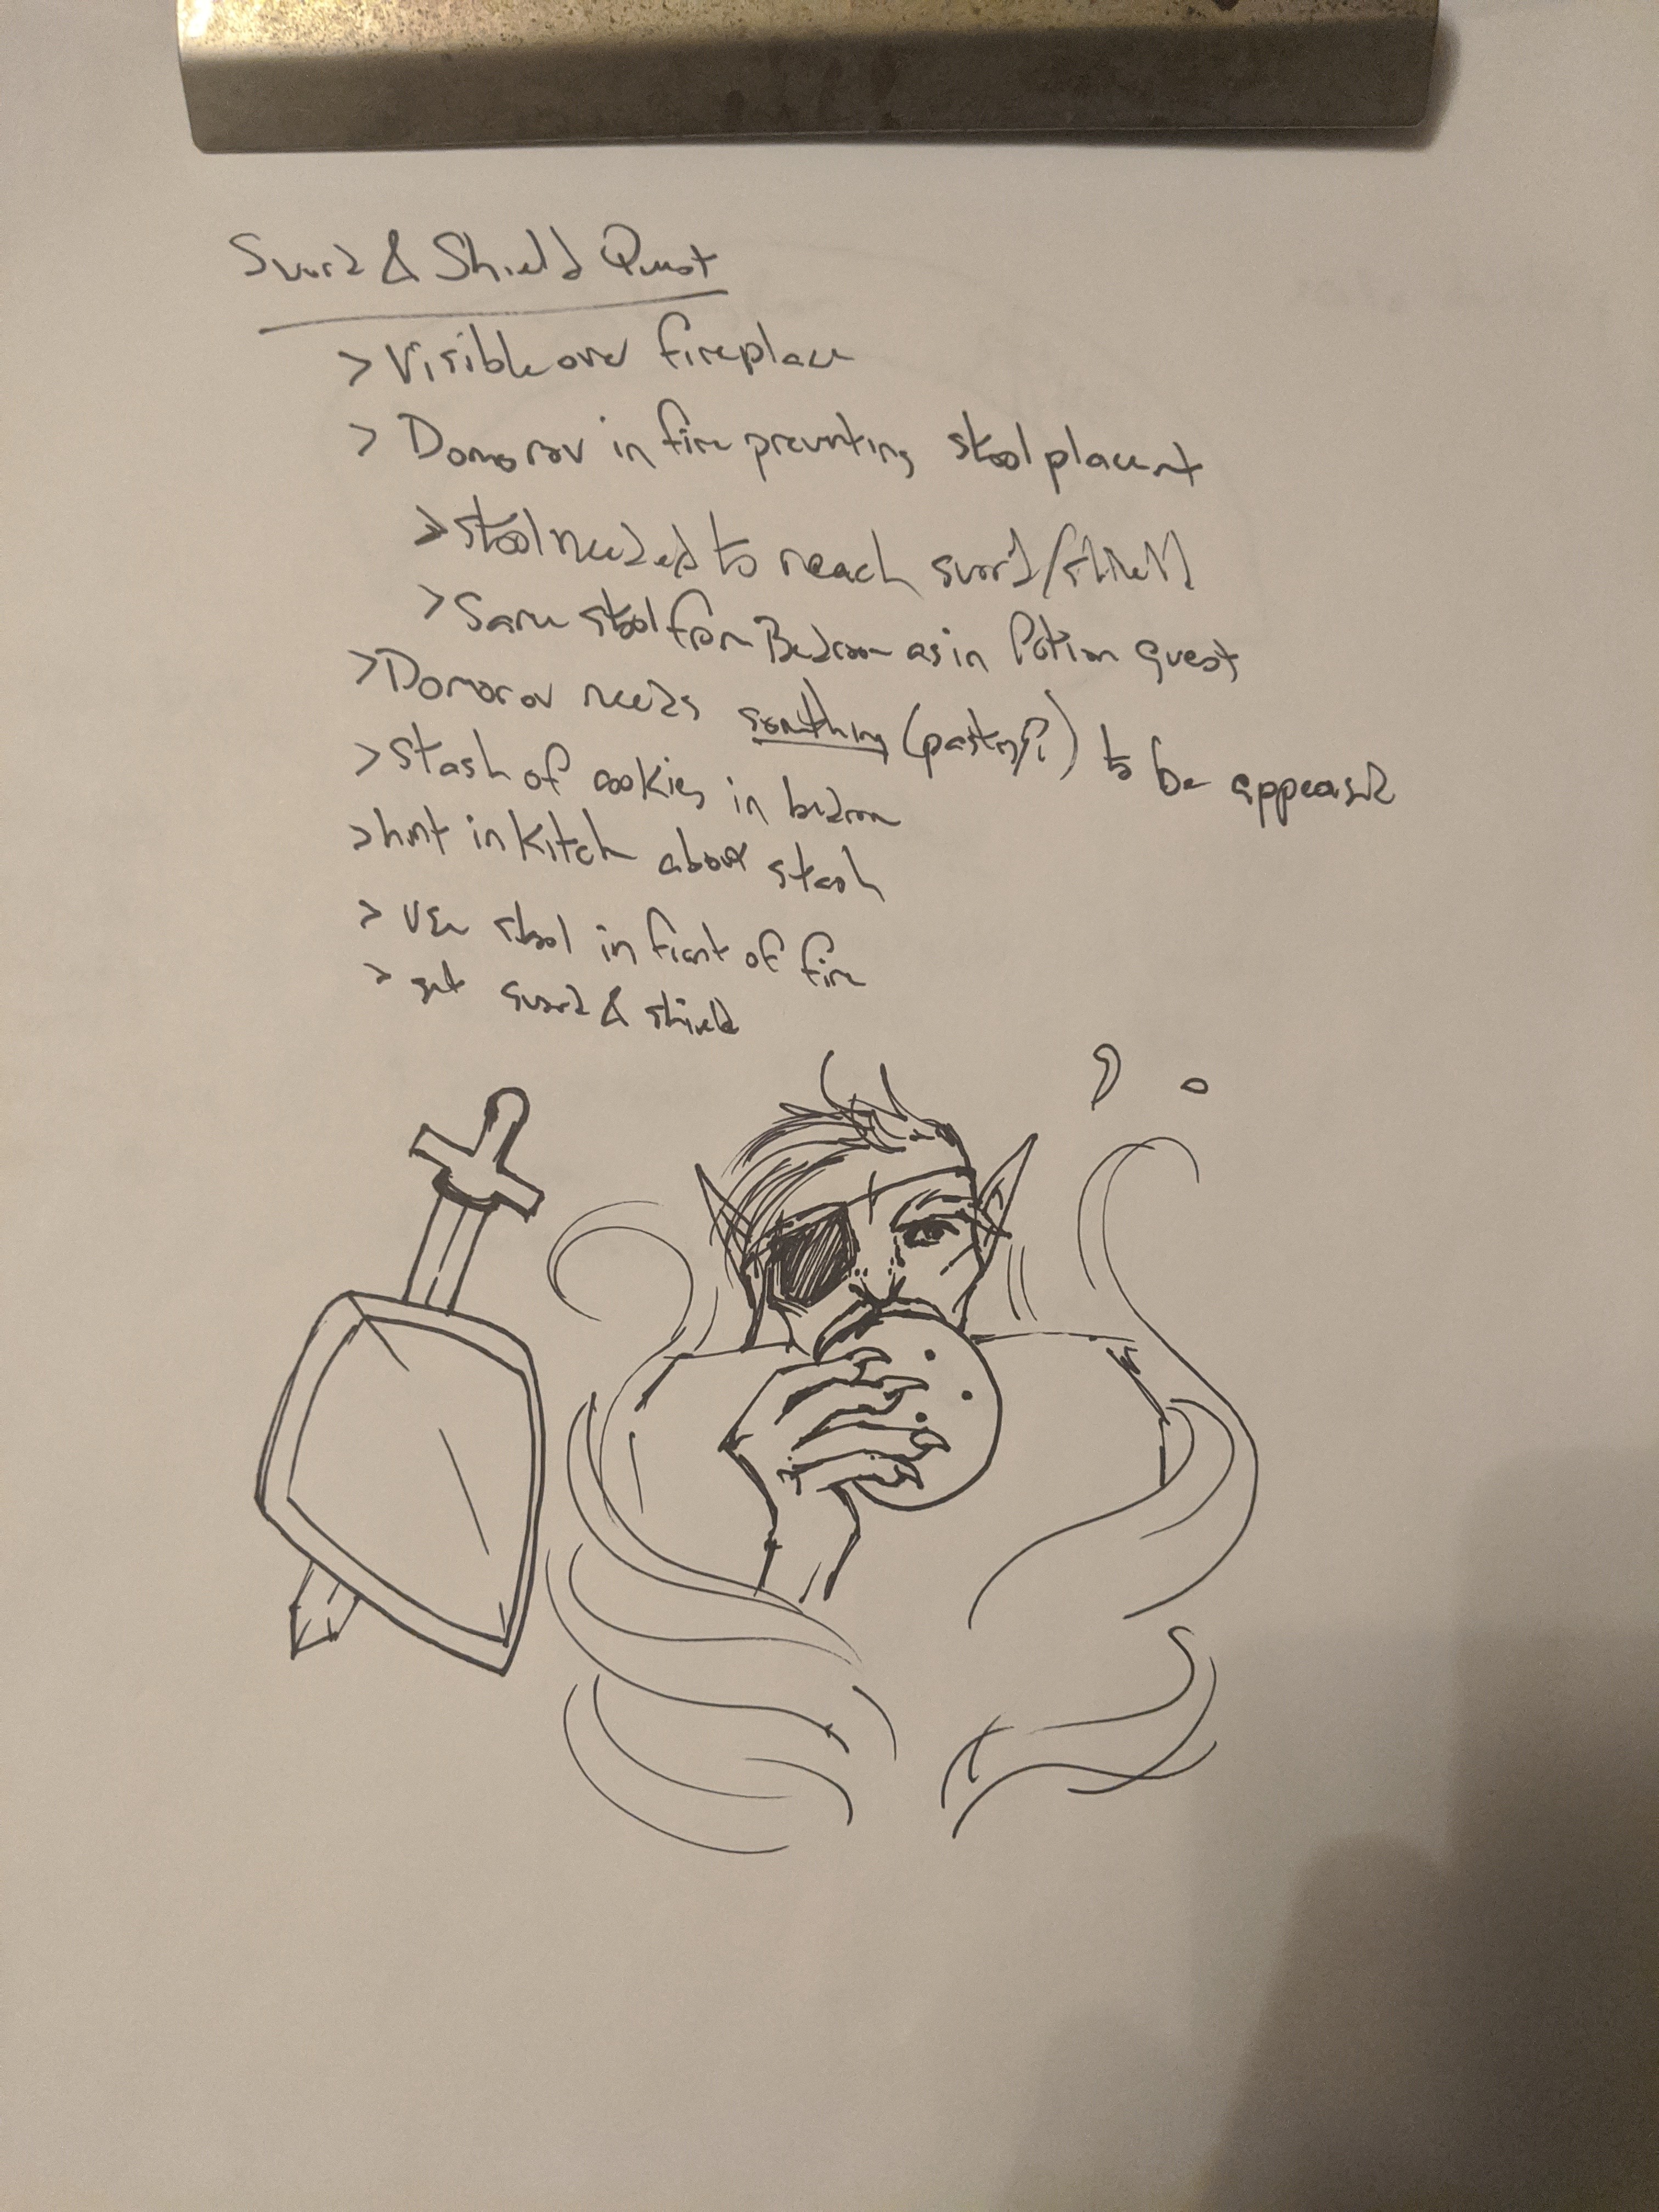 Sword & Shield Quest
> Visible over fireplace
> Domorov in fire preventing stool placement
> stool needed to reach sword/shield
> Same stool from Bedroom as in Potion quest
> Domorov needs something (pastry?) to be appeased
> stash of cookies in bedroom
> hint in kitchen about stash
> use stool in front of fire
> get sword & shield